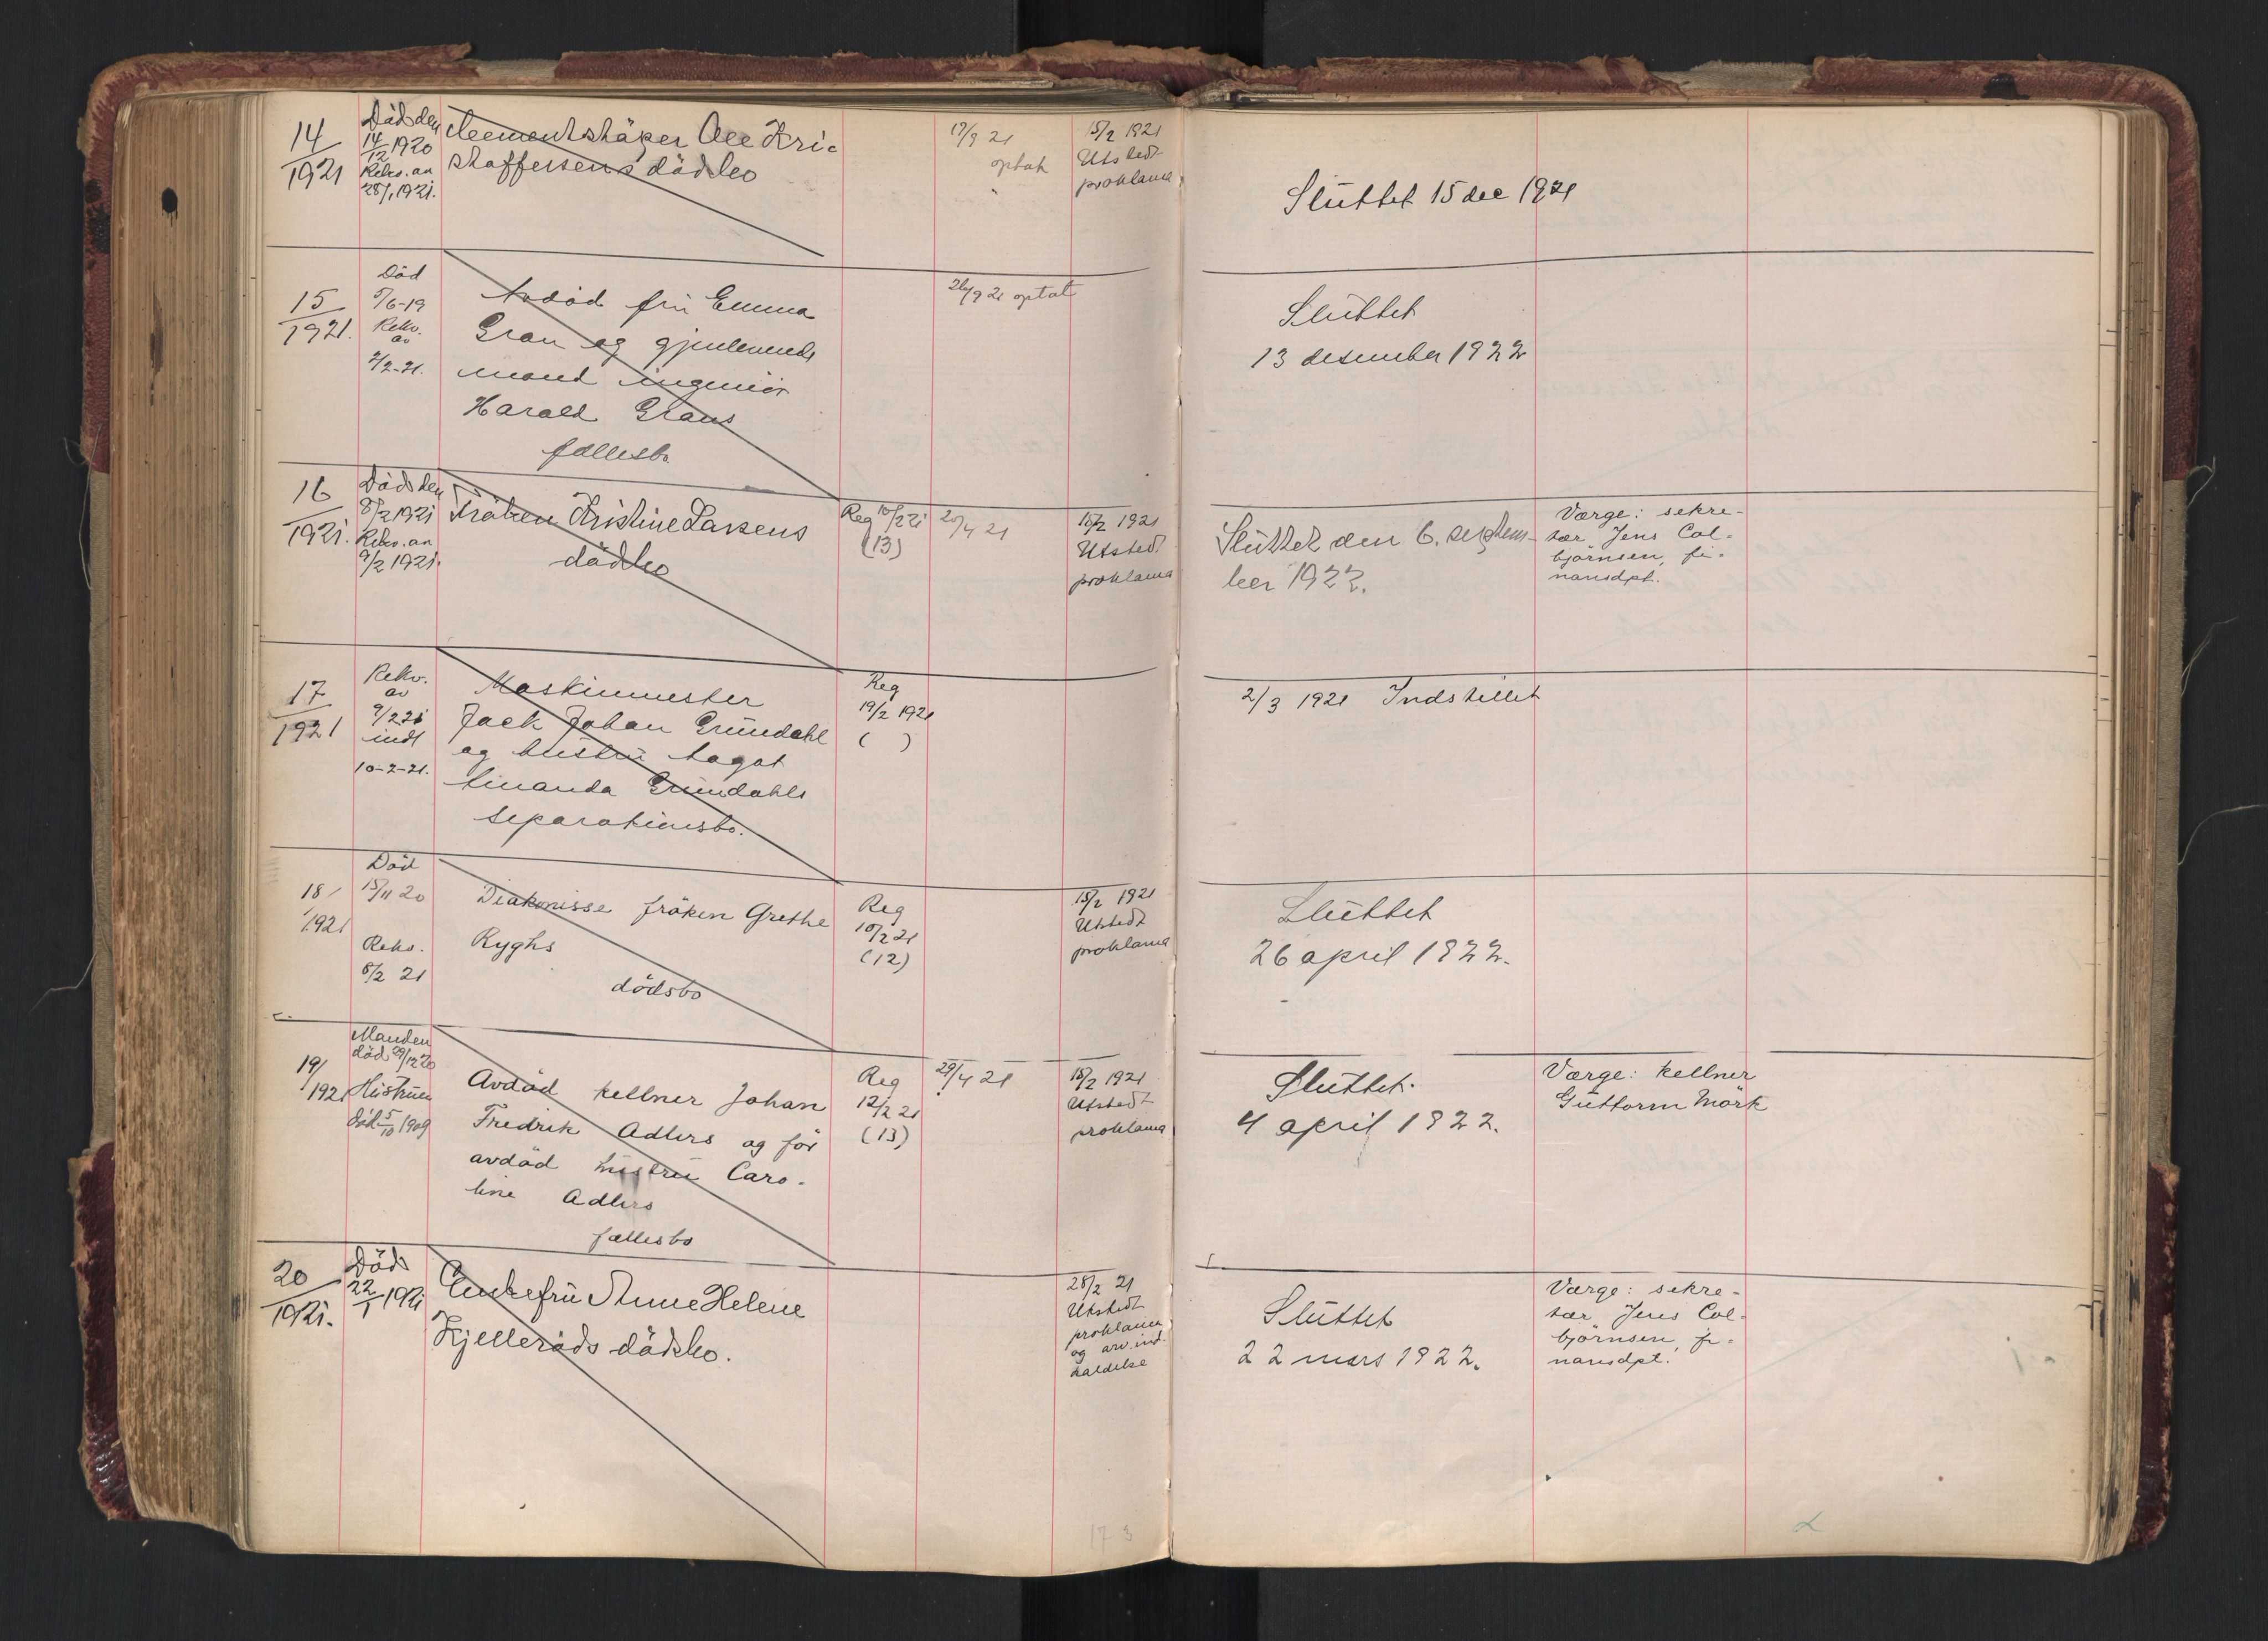 14
1921
Död den
14/12 1920
Rekv. an
28/1 1921.
Cementstöper Ole Kri-
stoffersens dödsbo
17/9 21
optat
15/2 1921
Utstedt
proklama
Sluttet 15 dec 1921
15
1921.
Död
5/6-19
Rekv.
av
2/2-21.
Avdöd frü Emma
Gran og gjenlevende
mand ingeniör
Harald Grans
fællesbo
26/9 21 optat
Sluttet
13 desember 1922
16
1921.
Död den
8/2 1921
Rekv. an
9/2 1921.
Fröken Kristine Larsens
dödsbo
Reg 10/2 21
(13)
20/4 21
15/2 1921
Utstedt
proklama
Sluttet den 6. septem-
ber 1922.
Værge: sekre-
tær Jens Col-
björnsen, fi-
nansdpt.
17
1921
Rekv.
av
9/2 21
indk
10-2-21.
Maskinmester
Jack Johan Gründahl
og hustrü Dagot
Gründahls
separationsbo.
Reg
19/2 1921
( )
2/3 1921 Indstillet
18/
1921
Död
15/11 20
Rekv.
8/2 21
Diakonisse fröken Grethe
Ryghs
dödsbo
Reg
10/2 21
(12)
15/2 1921
Utstedt
proklama
Sluttet
26 april 1922.
19/
1921
Manden
död 29/12 20
Hüstrüen
död 5/10 1909
Avdöd kellner Johan
Fredrik Adlers og för
avdöd hüstrü Caro-
line Adlers
fællesbo
Reg
12/2 21
(13)
29/4 21
15/2 1921
Utstedt
proklama
Sluttet.
4 april 1922.
Værge: kellner
Güttorm Mörk
20
1921.
Död
22/1 1921
Enkefrü Anne Helene
Kjelleröds dödsbo.
28/2 21
Utstedt
proklama
og arv. ind-
kaldelse
Sluttet
22 mars 1922.
Værge: sekre-
tær Jens Col-
björnsen, fi-
nansdpt.
17 3